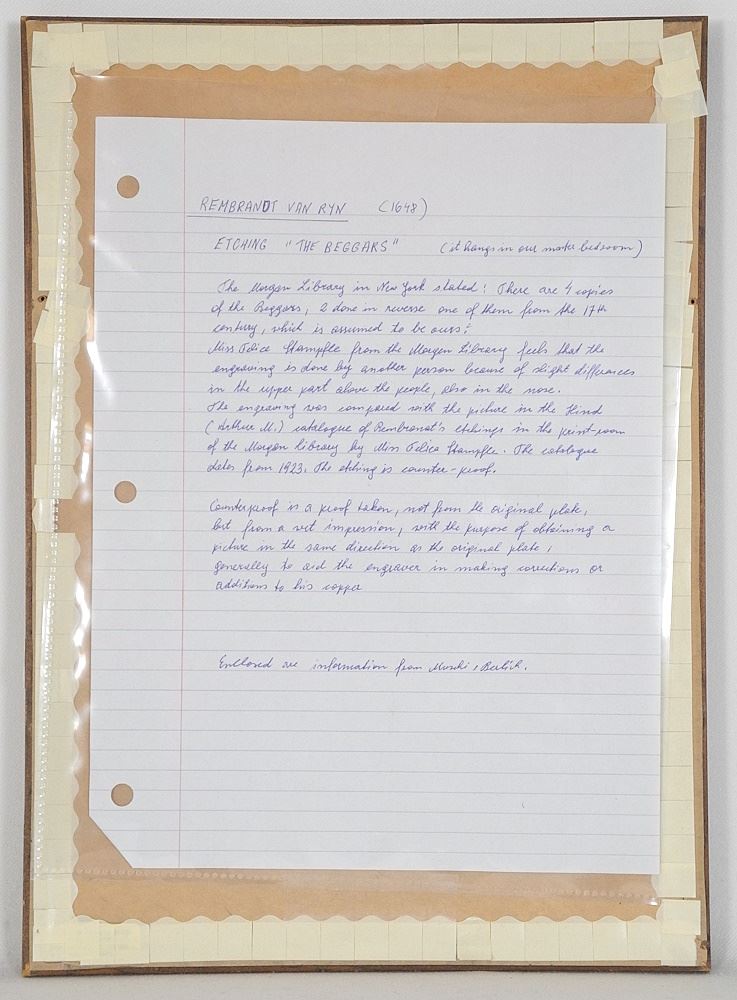 REMBRANDT VAN RYN (1648)
ETCHING "THE BEGGARS" (it hangs in our master bedroom)
The Morgan Library in New York stated: There are 4 copies
of the Beggars, 2 done in reverse one of them from the 17th
century, which is assumed to be ours!
Miss Felice Stampfle from the Morgan Library feels that the
engraving is done by another person because of slight differences
in the upper part above the people, also in the nose.
The engraving was compared with the picture in the Hind
(Arthur M.) catalogue of Rembrandt's etchings in the print-room
of the Morgan Library by Miss Felice Stampfle. The catalogue
dates from 1923. The etching is counter-proof.
Counterproof is a proof taken, not from the original plate,
but from a wet impression, with the purpose of obtaining a
picture in the same direction as the original plate,
generally to aid the engraver in making corrections or
additions to his copper
Enclosed are information from